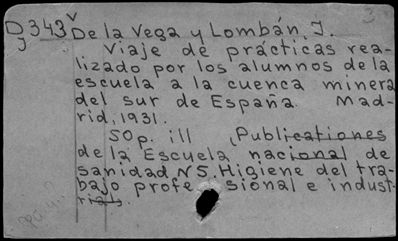 D 343 V De la Vega y Lombán, J.
J Viaje de prácticas rea-
lizado por los alumnos de la
escuela a la cuenca minera
del sur de España. Mad-
rid, 1931.
50p. ill (Publicationes
de la Escuela nacional de
sanidad N5. Higiene del tra-
bajo profesional e indust-
rial.